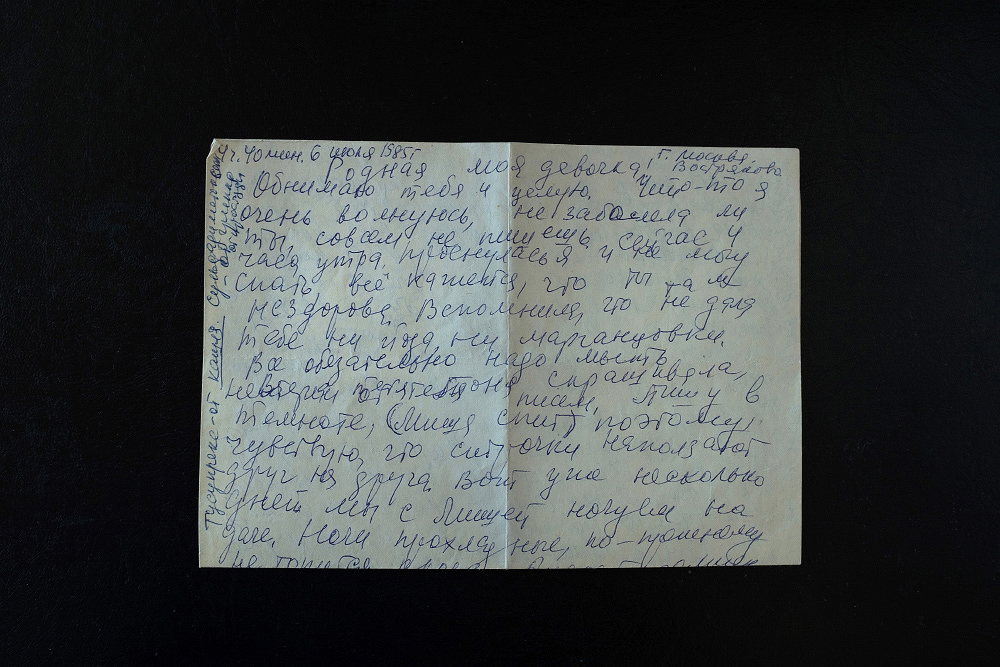 4 ч. 40 мин. 6 июля 1985 г
г. Москва.
Вострякова
Родная моя девочка!
Обнимаю тебя и целую. Что-то я
очень волнуюсь, не заболела ли
ты, совсем не пишешь, сейчас 4
часа утра, проснулась я и не могу
спать, всё кажется, что ты там
нездорова. Вспомнила, что не дала
тебе ни йода, ни марганцовки.
Всё обязательно надо мыть
спрашивала,
писем. Пишу в
темноте, (Миша спит) поэтому
чувствую, что строчки наползают
друг на друга. Вот уже несколько
дней мы с Мишей ночуем на
даче. Ночи прохладные, по-прошлому
Тусупрекс - от кашля. Сульфадиметоксин
- от ангины